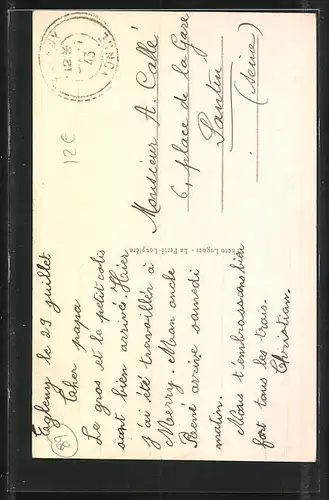 Egleny le 29 juillet
Cher papa
Le gros et le petit colis
sont bien arrivés. Hier
j'ai été travailler à
Merry. Mon oncle
René arrive samedi
matin.
Nous t'embrassons bien
fort tous les trois.
Christian.
Photo Lagues - La Ferté-Loupière
Monsieur A. Callé
6, place de la Gare
Pantin
(Seine)
12 *
43
YONNE
12 €
89